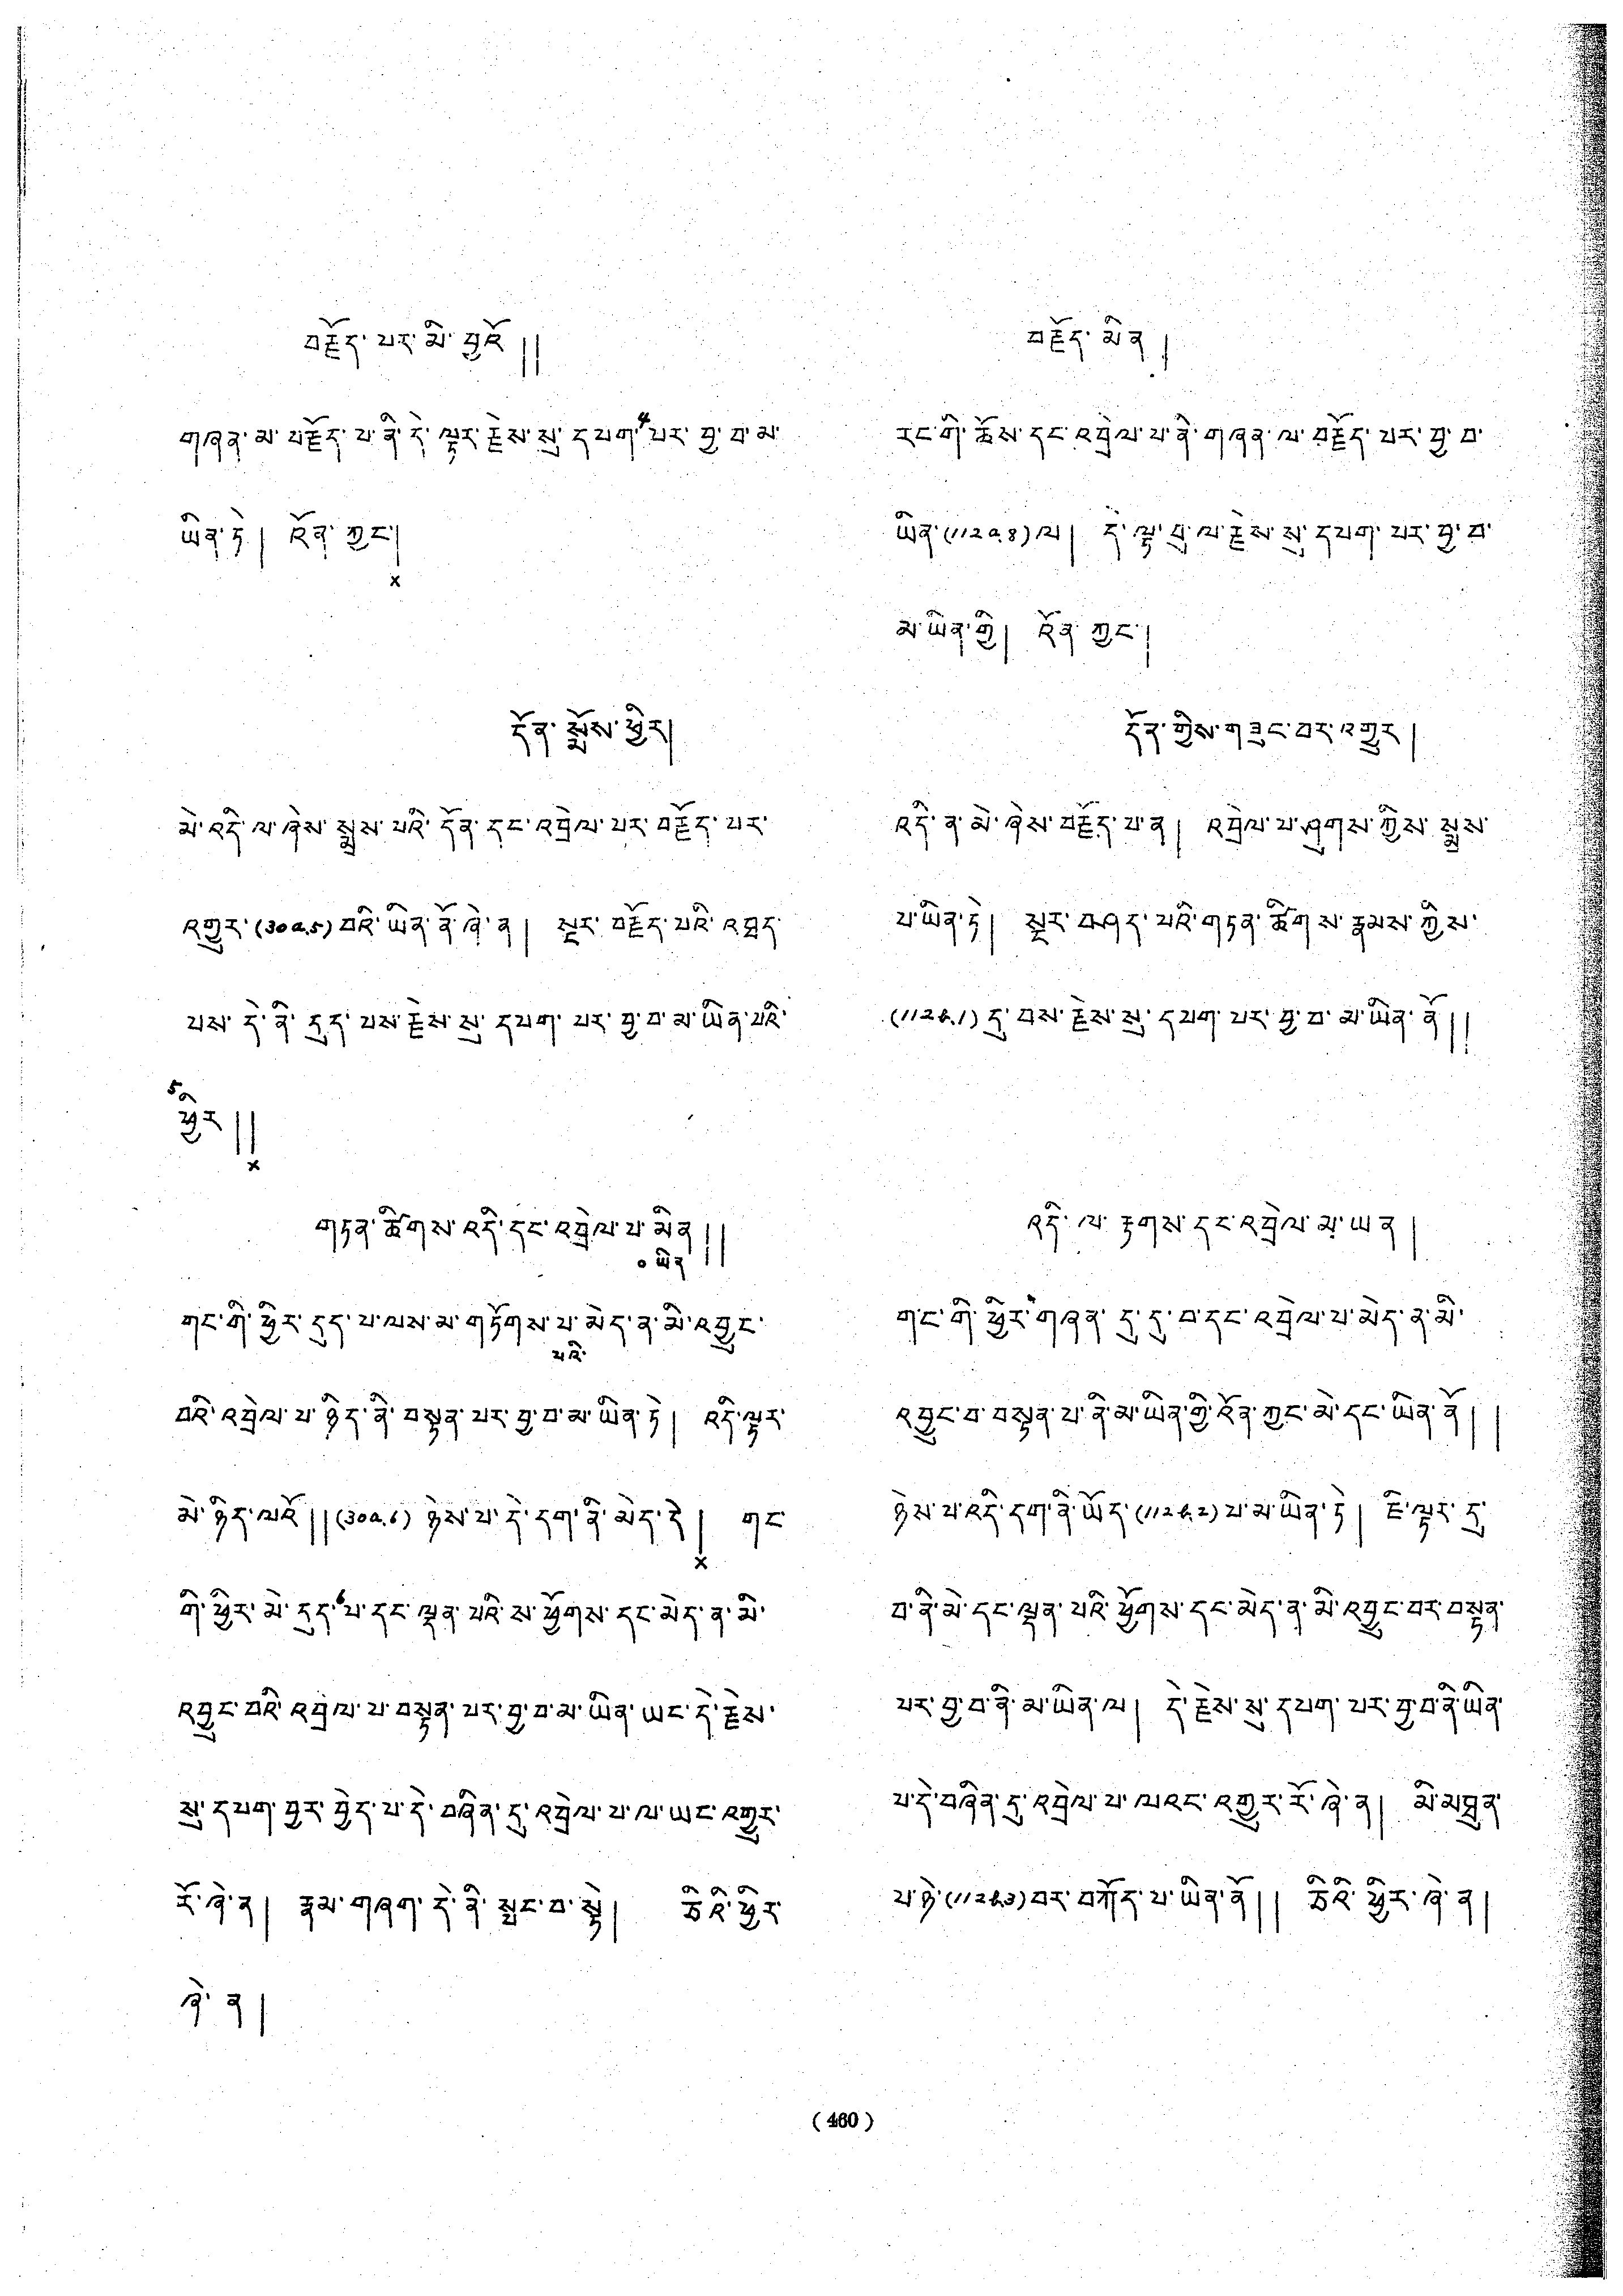 བརྗོད་པར་མི་བྱའོ།།
གཞན་མ་བརྗོད་པ་ནི་དེ་ལྟར་རྗེས་སུ་དཔག་4པར་བྱ་བ་མ་
ཡིན་ཏེ། འོན་ཀྱང་།
×
དོན་སྨོས་ཕྱིར།
མེ་འདི་ལ་ཞེས་སྨྲས་པའི་དོན་དང་འབྲེལ་པར་བརྗོད་པར་
འགྱུར་(30a.5)བའི་ཡིན་ནོ་ཞེ་ན། སྔར་བརྗོད་པའི་འཐད་
པས་དེ་ནི་དུད་པས་རྗེས་སུ་དཔག་པར་བྱ་བ་མ་ཡིན་པའི་
5
ཕྱིར།།
×
གཏན་ཚིགས་འདི་དང་འབྲེལ་པ་མིན།།
o ཡིན
གང་གི་ཕྱིར་དུད་པ་ལས་མ་གཏོགས་པ་མེད་ན་མི་འབྱུང་
པའི་
བའི་འབྲེལ་པ་ཉིད་ནི་བསྟན་པར་བྱ་བ་མ་ཡིན་ཏེ། འདི་ལྟར་
མེ་ཉིད་ལའོ།།(30a.6) ཉེས་པ་དེ་དག་ནི་མེད་དེ། གང་
×
གི་ཕྱིར་མེ་དུད་6པ་དང་ལྡན་པའི་ས་ཕྱོགས་དང་མེད་ན་མི་
འབྱུང་བའི་འབྲེལ་པ་བསྟན་པར་བྱ་བ་མ་ཡིན་ཡང་དེ་རྗེས་
སུ་དཔག་བྱར་བྱེད་པ་དེ་བཞིན་དུ་འབྲེལ་པ་ལ་ཡང་འགྱུར་
རོ་ཞེ་ན། རྣམ་གཞག་དེ་ནི་སྤང་བ་སྟེ། ཅིའི་ཕྱིར་
ཞེ་ན།
བརྗོད་མིན།
རང་གི་ཆོས་དང་འབྲེལ་པ་ནི་གཞན་ལ་བརྗོད་པར་བྱ་བ་
ཡིན་(112a.8)ལ། དེ་ལྟ་བུ་ལ་རྗེས་སུ་དཔག་པར་བྱ་བ་
མ་ཡིན་གྱི། འོན་ཀྱང་།
དོན་གྱིས་གཟུང་བར་འགྱུར།
འདི་ན་མེ་ཞེས་བརྗོད་པ་ན། འབྲེལ་པ་ཤུགས་ཀྱིས་སྨྲས་
པ་ཡིན་ཏེ། སྔར་བཤད་པའི་གཏན་ཚིགས་རྣམས་ཀྱིས་
(112b.1)དུ་བས་རྗེས་སུ་དཔག་པར་བྱ་བ་མ་ཡིན་ནོ།།
འདི་ལ་རྟགས་དང་འབྲེལ་མ་ཡན།
གང་གི་ཕྱིར་གཞན་དུ་དུ་བ་དང་འབྲེལ་པ་མེད་ན་མི་
འབྱུང་བ་བསྟན་པ་ནི་མ་ཡིན་གྱི་འོན་ཀྱང་མེ་དང་ཡིན་ནོ།།
ཉེས་པ་འདི་དག་ནི་ཡོད་(112b.2)པ་མ་ཡིན་ཏེ། ཇི་ལྟར་དུ་
བ་ནི་མེ་དང་ལྡན་པའི་ཕྱོགས་དང་མེད་ན་མི་འབྱུང་བར་བསྟན་
པར་བྱ་བ་ནི་མ་ཡིན་ལ། དེ་རྗེས་སུ་དཔག་པར་བྱ་བ་ནི་ཡིན་
པ་དེ་བཞིན་དུ་འབྲེལ་པ་ལའང་འགྱུར་རོ་ཞེ་ན། མི་མཐུན་
པ་ཉེ་(112b.3)བར་བཀོད་པ་ཡིན་ནོ།། ཅིའི་ཕྱིར་ཞེ་ན།
(460)